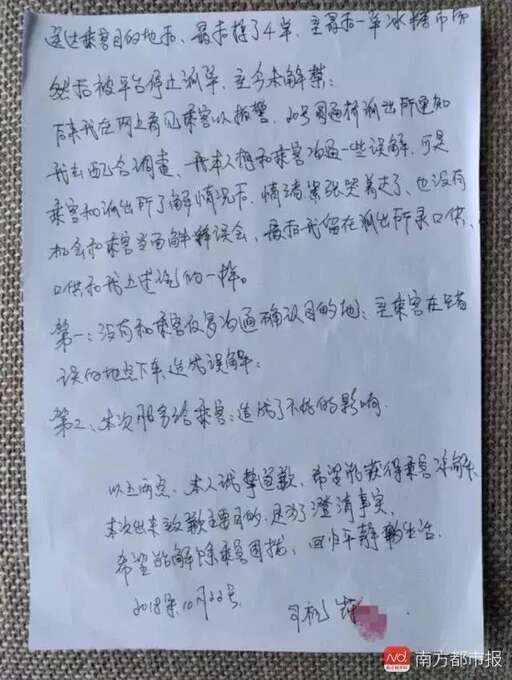 送达乘客目的地后、最后接了4单、至最后一单冰糖市场
然后被平台停止派单、至今未解禁;
后来我在网上看见乘客以报警、20号周通桥派出所通知
我去配合调查、我本人想和乘客沟通一些误解、可是
乘客和派出所了解情况后、情绪紧张哭着走了、也没有
机会和乘客当面解释误会、最后我留在派出所录口供、
口供和我上述说的一样。
第一:没有和乘客反复沟通确认目的地、至乘客在错
误的地点下车造成误解;
第二、本次服务给乘客:造成了不好的影响.
以上两点、本人诚挚道歉、希望能获得乘客谅解、
本次出来致歉主要目的、是为了澄清事实、
希望能解除乘客困扰、回归平静的生活.
2018年10月22号.
司机
南方都市报